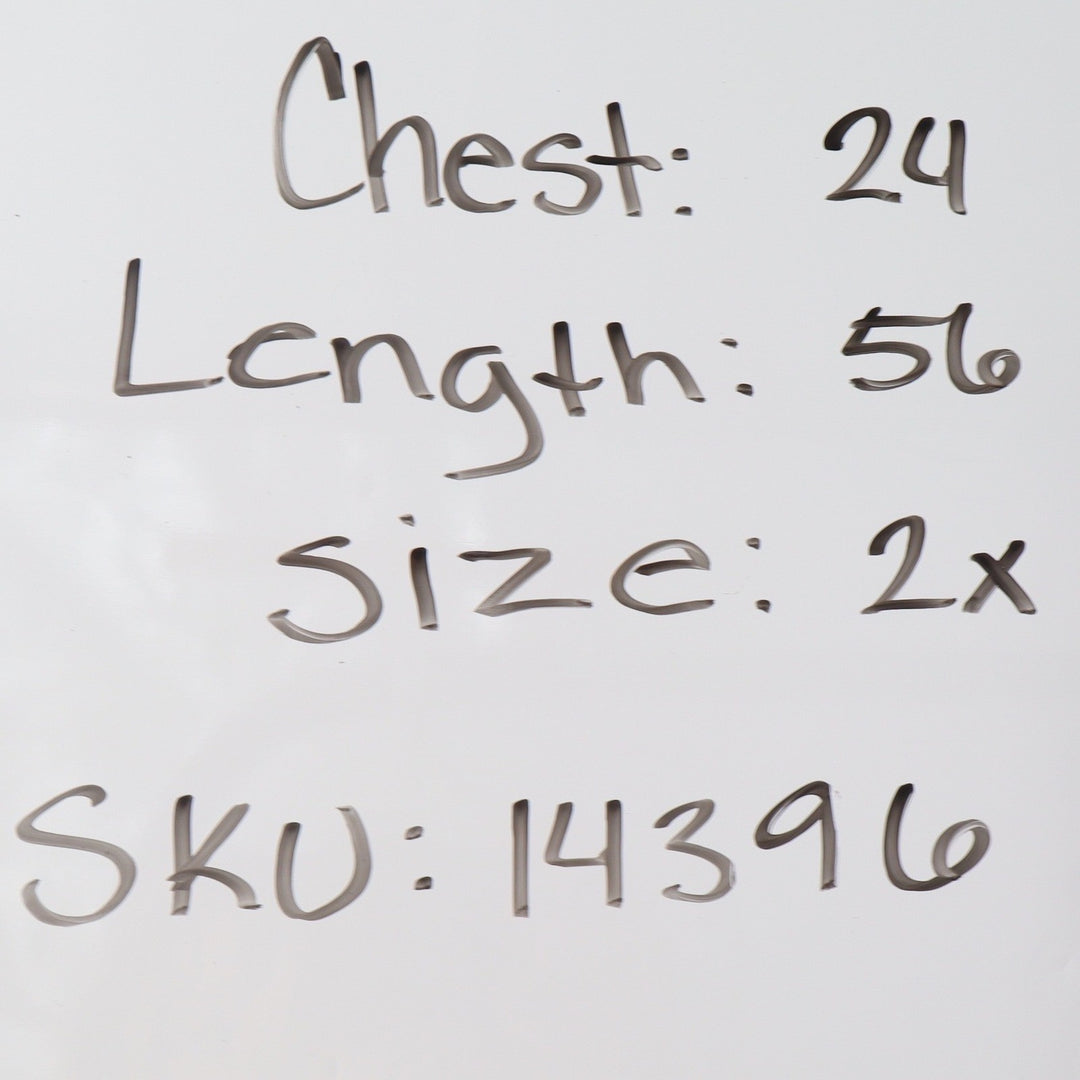 Chest: 24
Length: 56
Size: 2x
SKU: 14396